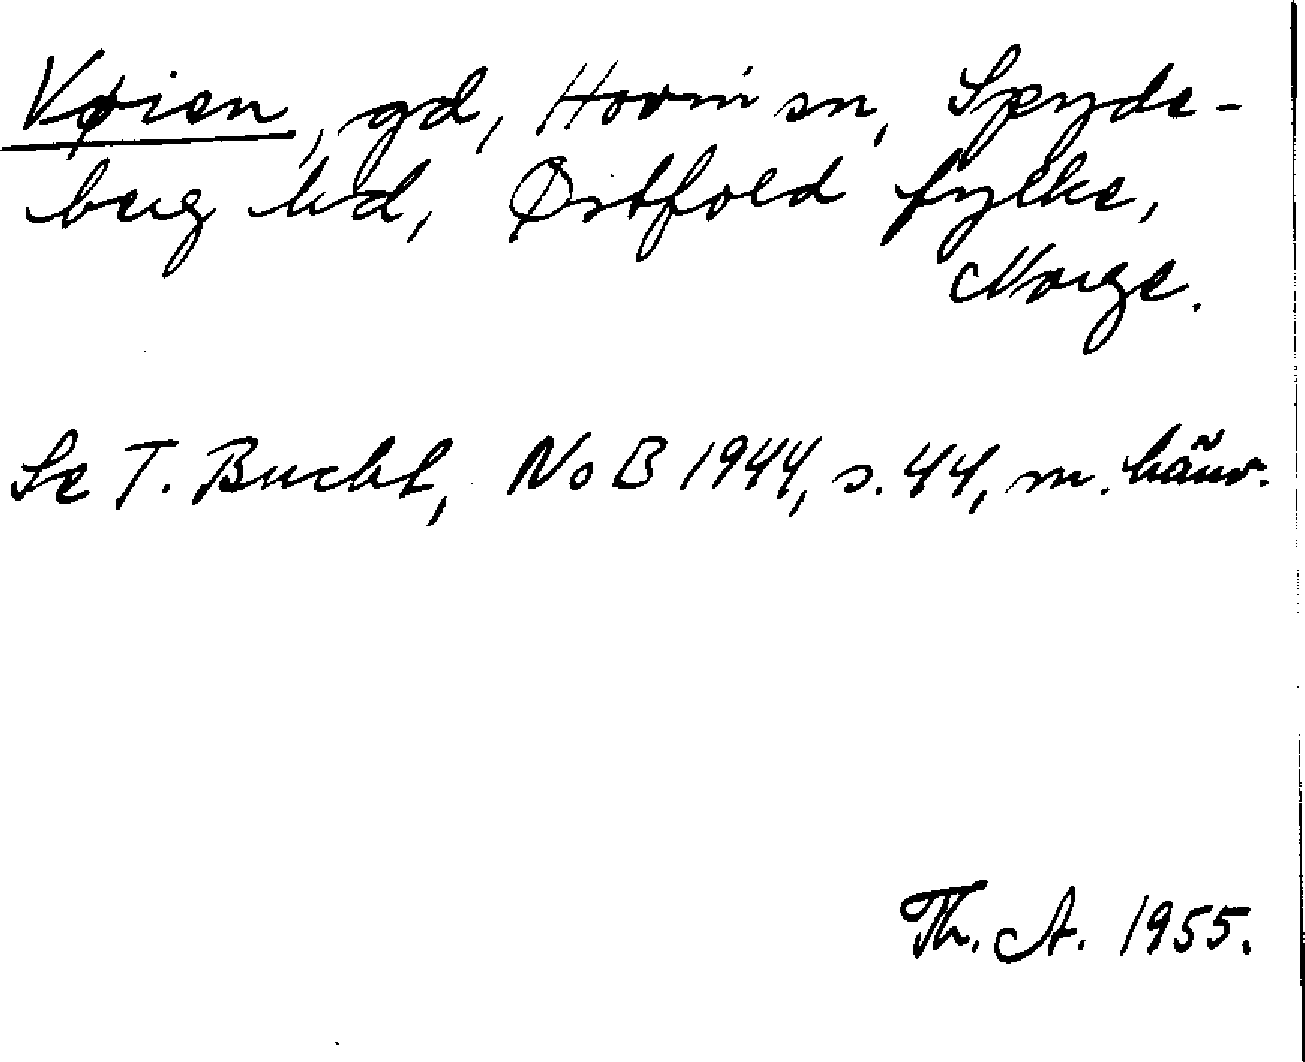 Vøien, gd, Hovin sn, Spyde-
berg hd, Østfold fylke,
Norge.
Se T. Bucht, NoB 1944, s. 44, m. hänv.
Th. A. 1955.